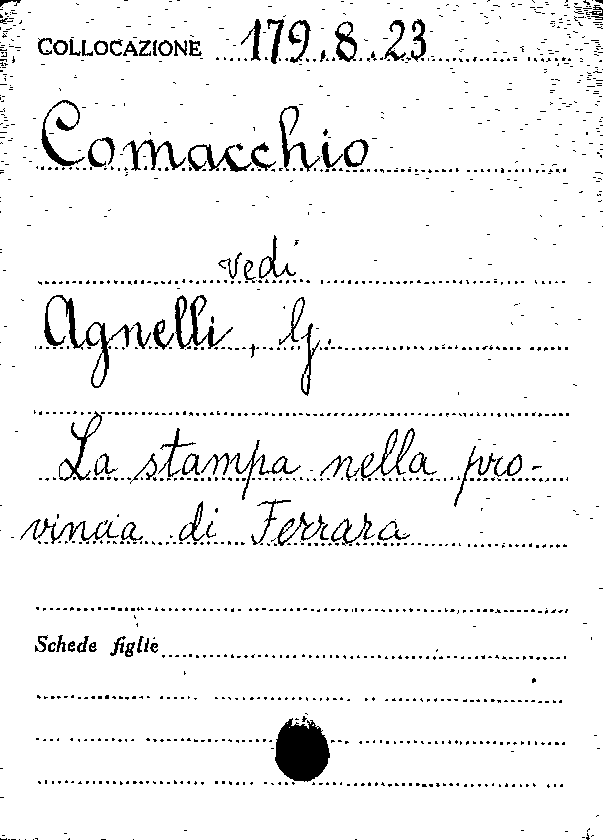 COLLOCAZIONE 179.8.23
Comacchio
vedi
Agnelli, G.
La stampa nella pro-
vincia di Ferrara
Schede figlie